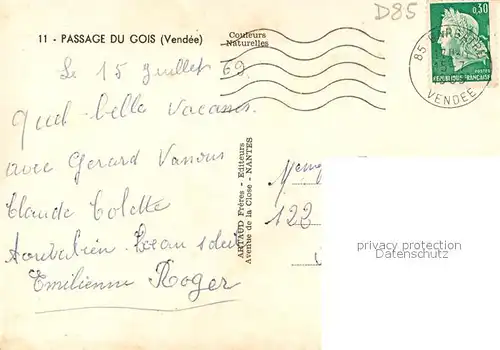 D85
11 - PASSAGE DU GOIS (Vendée)
Couleurs
Naturelles
0,30
REPUBLIQUE FRANÇAISE
POSTES
85
VENDEE
Le 15 Juillet 69
quel belle vacances
avec Gerard
Claude Colette
Emilienne Roger
ARTAUD Frères - Editeurs
Avenue de la Close - NANTES
privacy protection
Datenschutz